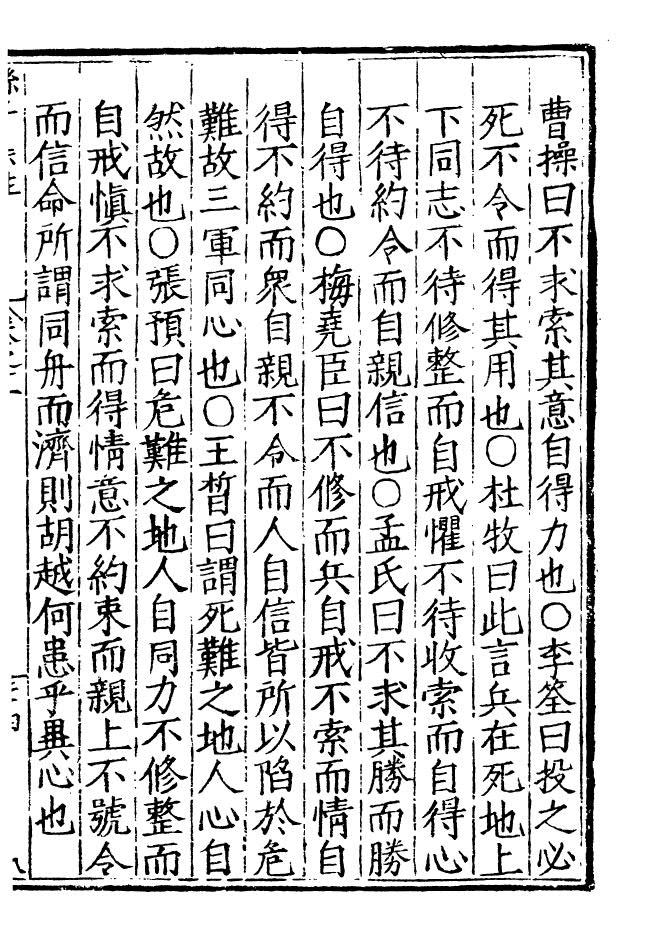 曹操曰不求索其意自得力也○李筌曰投之必
死不令而得其用也○杜牧曰此言兵在死地上
下同志不待修整而自戒懼不待收索而自得心
不待約令而自親信也○孟氏曰不求其勝而勝
自得也○梅堯臣曰不修而兵自戒不索而情自
得不約而衆自親不令而人自信皆所以陷於危
難故三軍同心也○王晳曰謂死難之地人心自
然故也○張預曰危難之地人自同力不修整而
自戒愼不求索而得情意不約束而親上不號令
而信命所謂同舟而濟則胡越何患乎異心也